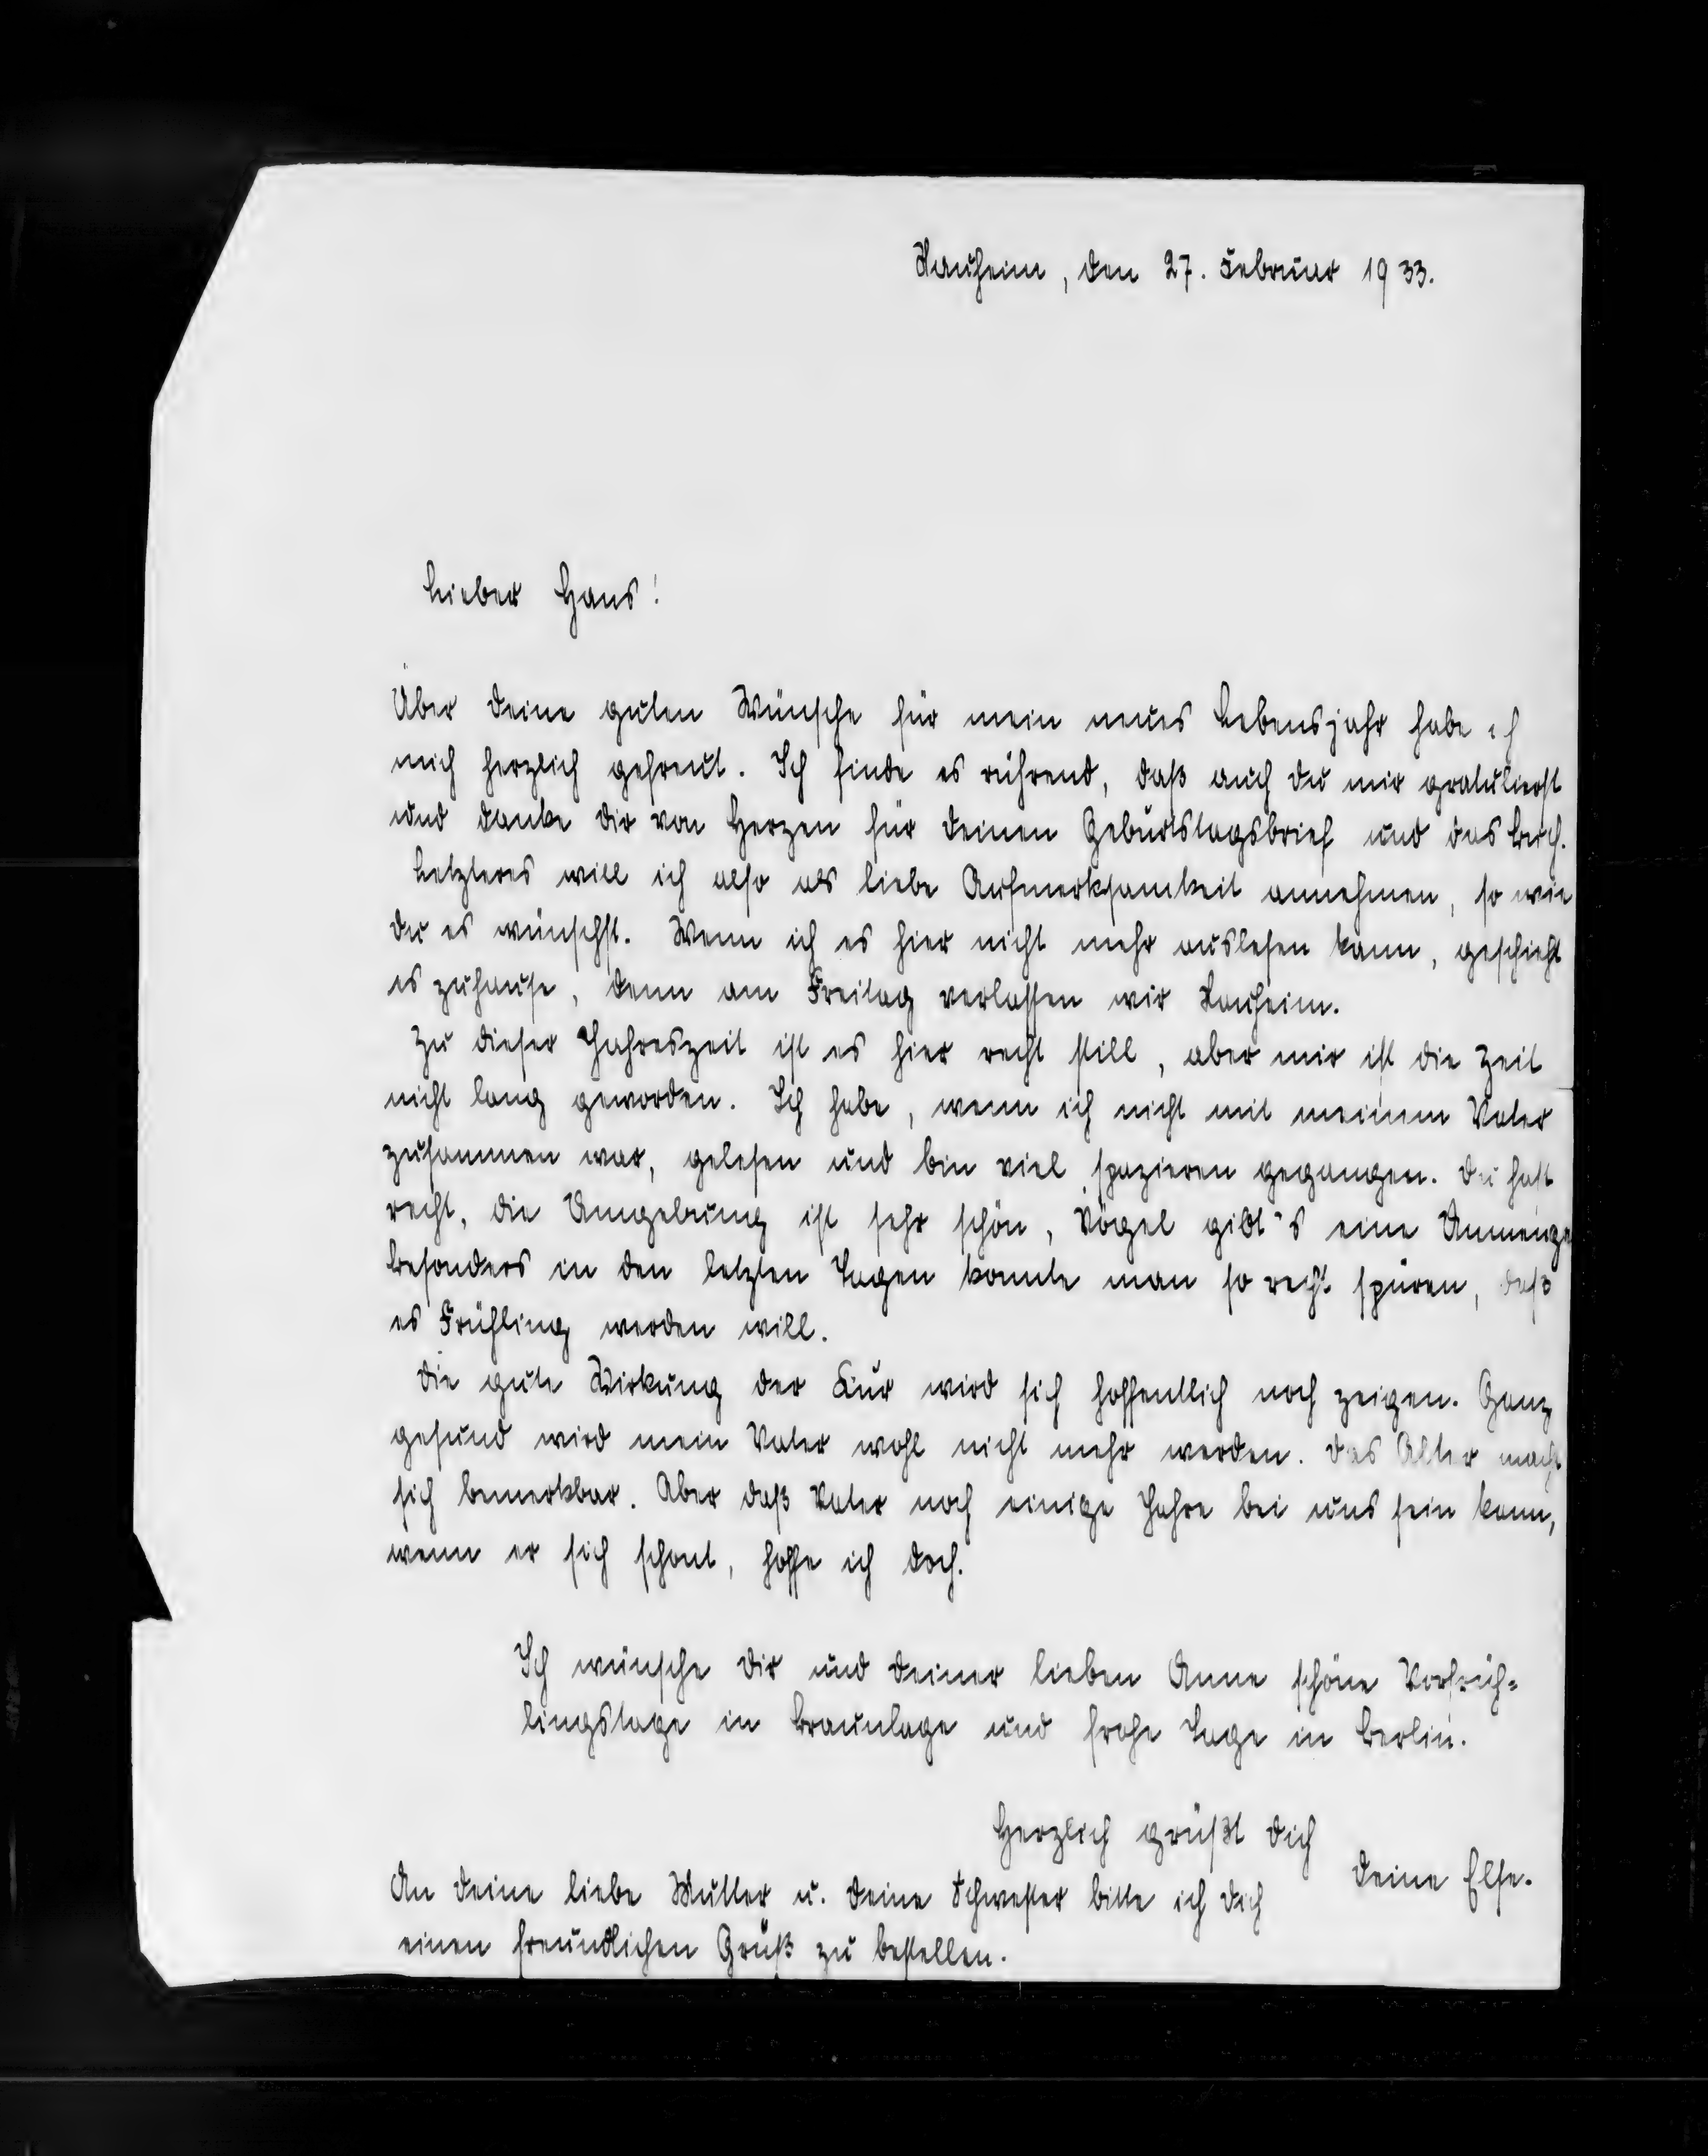 Nauheim, den 27. Februar 1933.
Lieber Hans!
Über Deine guten Wünsche für mein neues Lebensjahr habe ich
mich herzlich gefreut. Ich finde es rührend, daß auch Du mir gratulierst
und danke Dir von Herzen für Deinen Geburtstagsbrief und das Buch.
Letzteres will ich also als liebe Aufmerksamkeit annehmen, so wie
Du es wünschst. Wenn ich es hier nicht mehr auslesen kann, geschieht
es zuhause, denn am Freitag verlassen wir Nauheim.
Zu dieser Jahreszeit ist es hier recht still, aber mir ist die Zeit
nicht lang geworden. Ich habe, wenn ich nicht mit meinem Vater
zusammen war, gelesen und bin viel spazieren gegangen. Du hast
recht, die Umgebung ist sehr schön, Vögel gibt's eine Unmenge
besonders in den letzten Tagen konnte man so recht spüren, daß
es Frühling werden will.
Die gute Wirkung der Kur wird sich hoffentlich noch zeigen. Ganz
gesund wird mein Vater wohl nicht mehr werden. Das Alter macht
sich bemerkbar. Aber daß Vater noch einige Jahre bei uns sein kann,
wenn er sich schont, hoffe ich doch.
Ich wünsche Dir und Deiner lieben Anne schöne Vorfrüh=
lingstage in Braunlage und frohe Tage in Berlin.
Herzlich grüßt Dich
Deine Else.
An Deine liebe Mutter u. Deine Schwester bitte ich Dich
einen freundlichen Gruß zu bestellen.